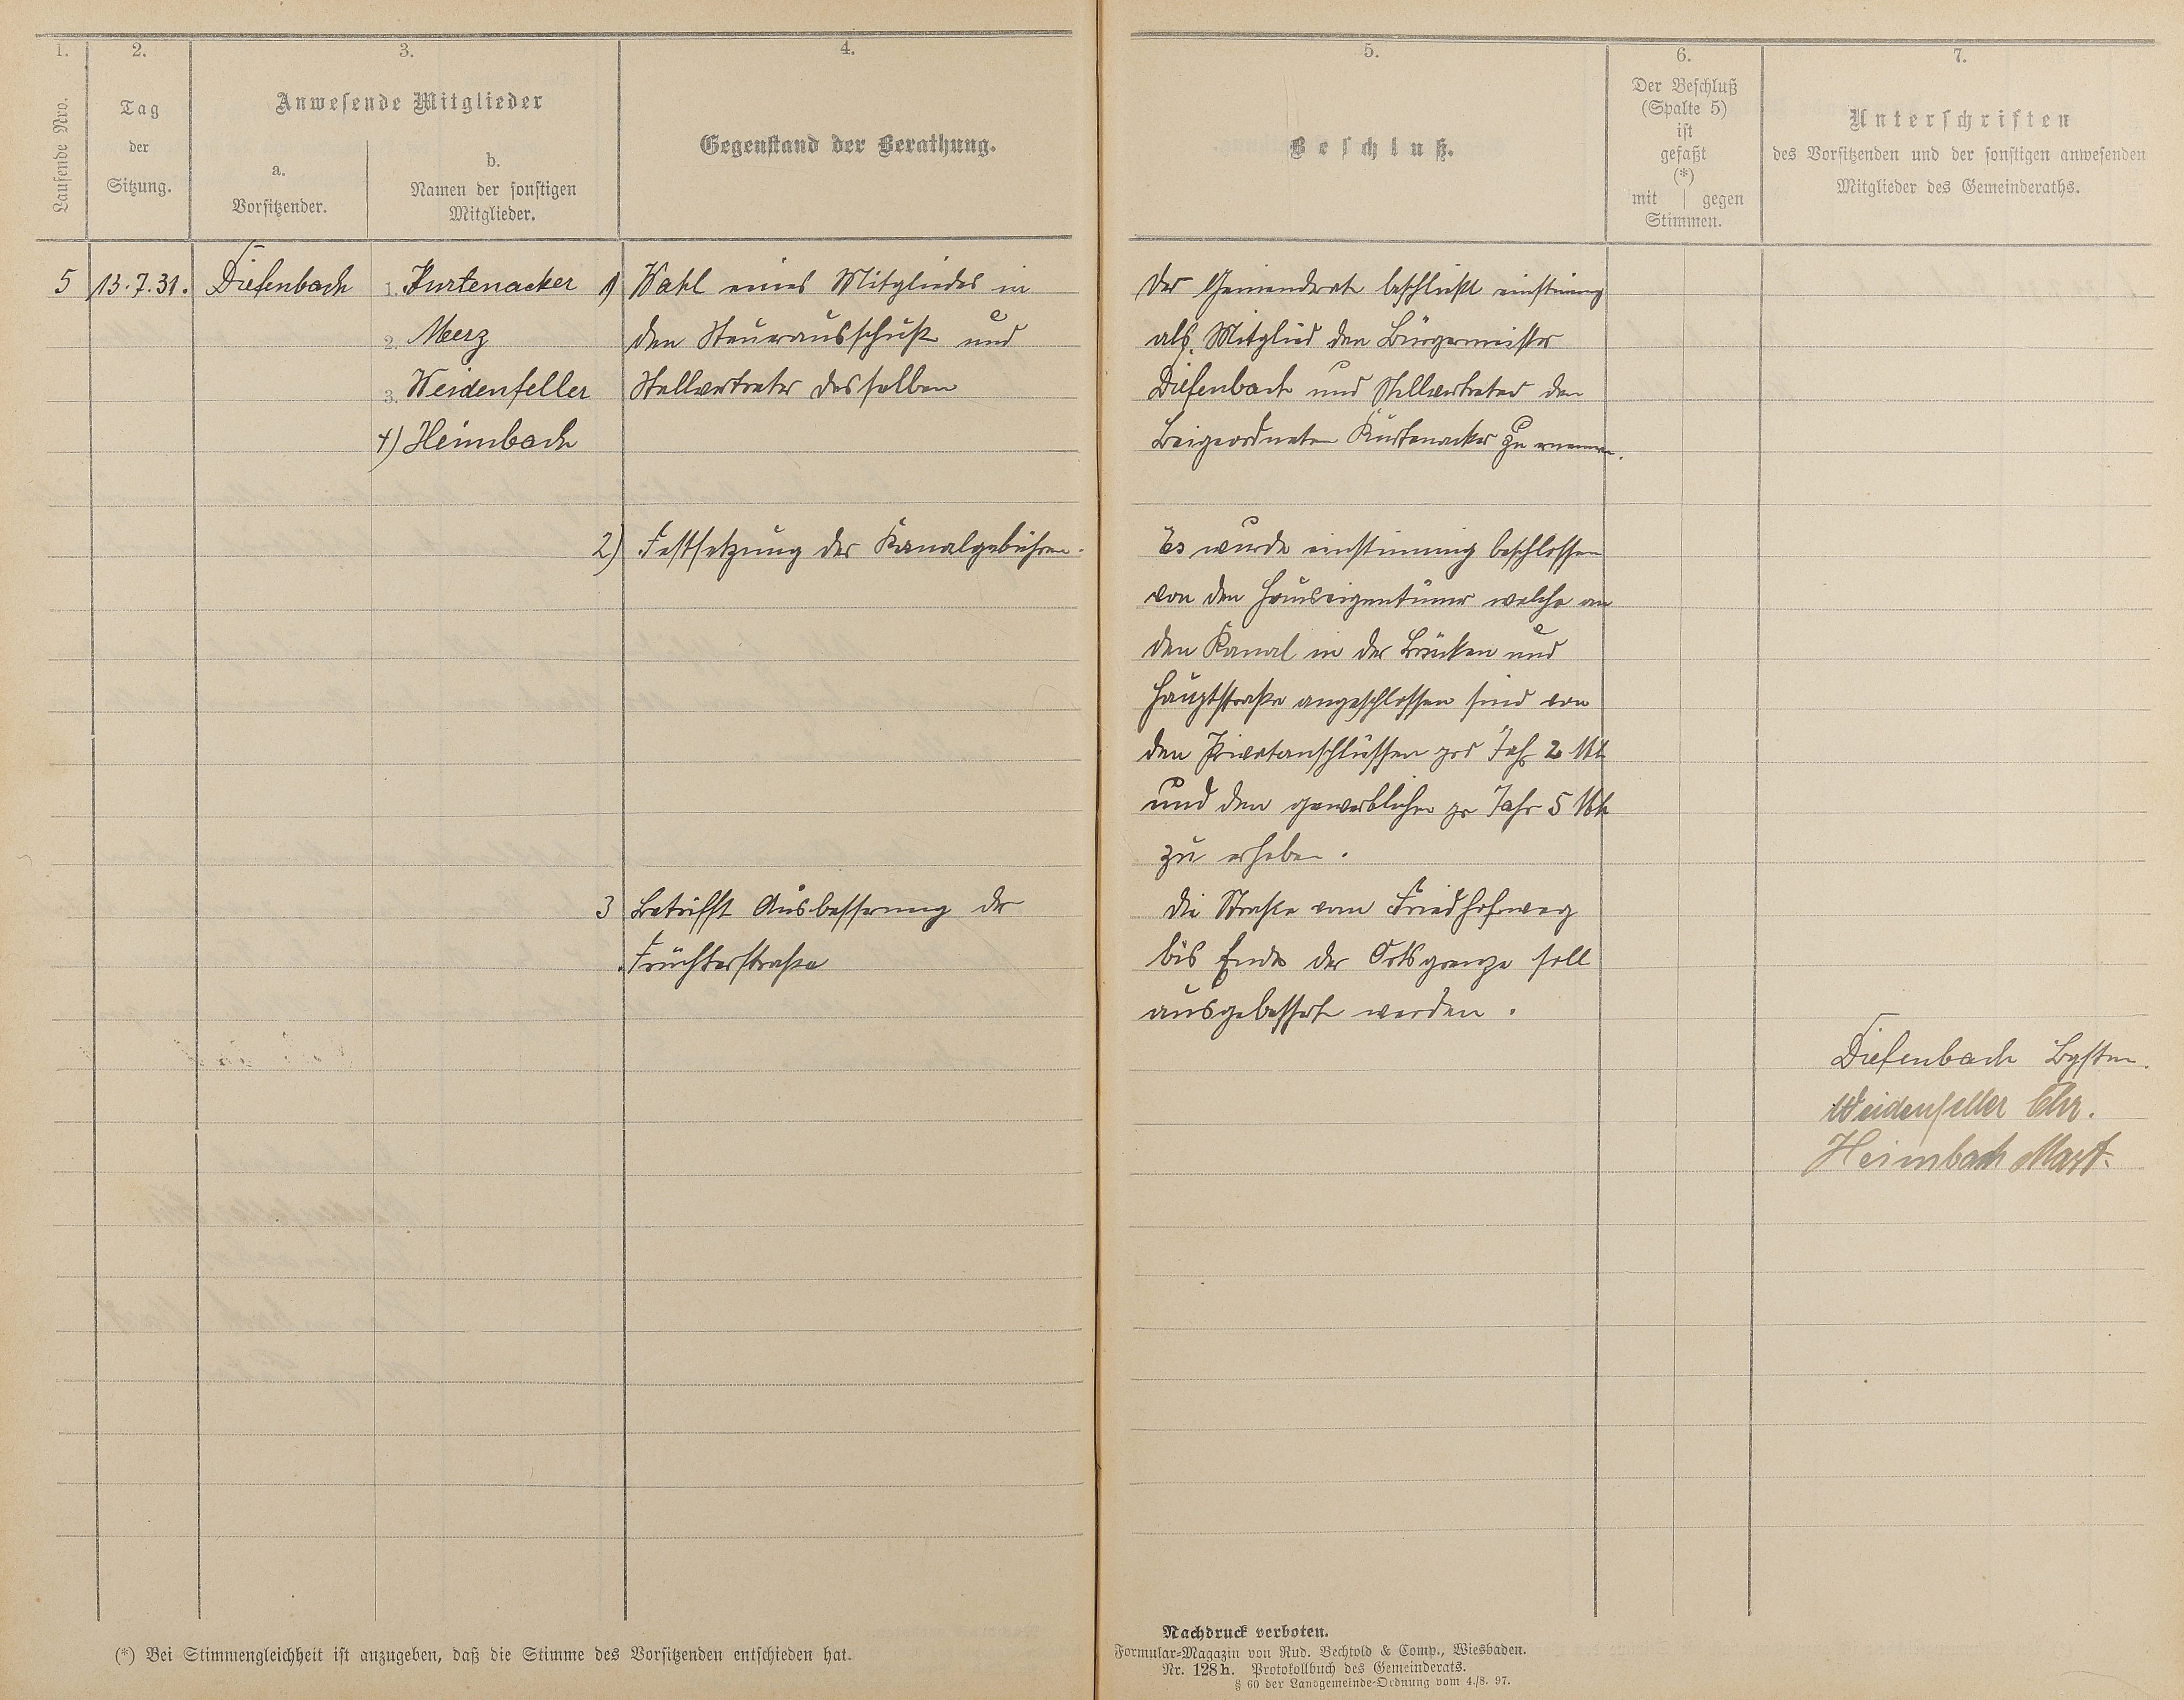 1.
2.
3.
4.
Laufende Nro.
Tag
der
Sitzung.
Anwesende Mitglieder
a.
Vorsitzender.
b.
Namen der sonstigen
Mitglieder.
Gegenstand der Berathung.
5 13.7.31. Diefenbach 1. Kurtenacker 1) Wahl eines Mitgliedes in
2. Merz den Steuerausschuß und
3. Weidenfeller Stellvertreter desselben
4) Heimbach
2) Festsetzung der Kanalgebühren.
3 Betrifft Ausbesserung der
Früchterstraße
(*) Bei Stimmengleichheit ist anzugeben, daß die Stimme des Vorsitzenden entschieden hat.
5.
6.
7.
Beschluß.
Der Beschluß
(Spalte 5)
ist
gefaßt
(*)
mit | gegen
Stimmen.
Unterschriften
des Vorsitzenden und der sonstigen anwesenden
Mitglieder des Gemeinderaths.
Der Gemeinderat beschließt einstimig
als Mitglied den Bürgermeister
Diefenbach und Stellvertreter den
Beigeordneten Kurtenacker zu ernennen.
Es wurde einstimmig beschlossen
von den Hauseigentümer welche an
den Kanal in der Brücken und
Hauptstraße angeschlossen sind von
den Privatanschlüssen pro Jahr 2 Mk
und den gewerblichen pr Jahr 5 Mk
zu erheben.
Die Straße vom Friedhofsweg
bis Ende der Ortsgrenze soll
ausgebessert werden.
Diefenbach Bgstm.
Weidenfeller Chr.
Heimbach Mart.
Nachdruck verboten.
Formular-Magazin von Rud. Bechtold & Comp., Wiesbaden.
Nr. 128 h. Protokollbuch des Gemeinderats.
§ 60 der Landgemeinde-Ordnung vom 4./8. 97.